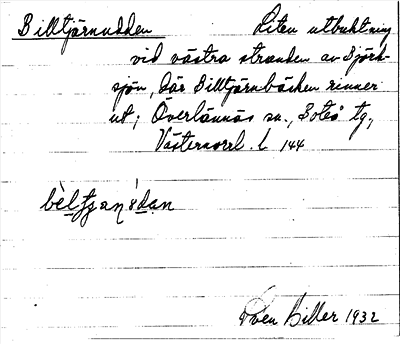 Billtjärnudden Liten utbuktning
vid västra stranden av Björk-
sjön, där Billtjärnbäcken rinner
ut; Överlännäs sn., Boteå tg,
Västernorrl. l 144
Sven Biller 1932